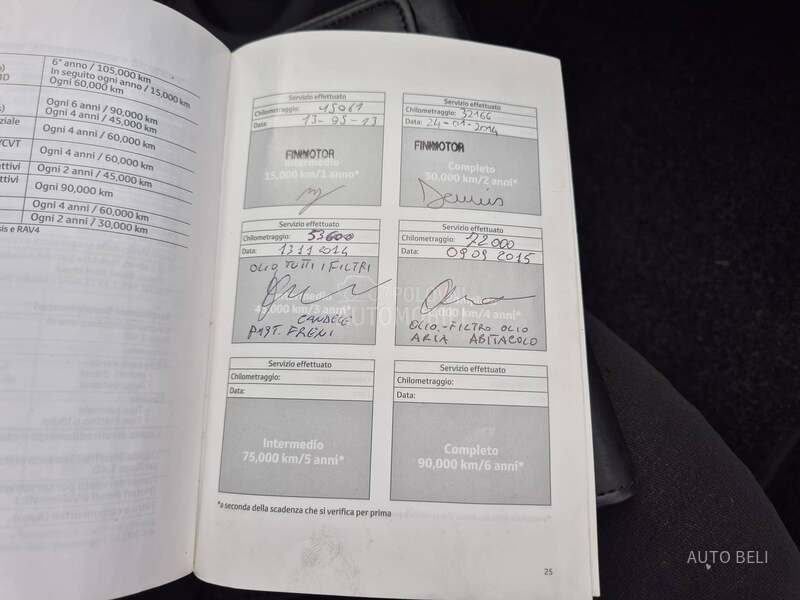 6° anno / 105,000 km
In seguito ogni anno / 15,000 km
Ogni 60,000 km
Ogni 6 anni / 90,000 km
Ogni 4 anni / 45,000 km
Ogni 4 anni / 60,000 km
Ogni 4 anni / 60,000 km
Ogni 2 anni / 45,000 km
Ogni 90,000 km
Ogni 4 anni / 60,000 km
Ogni 2 anni / 30,000 km
sis e RAV4
Servizio effettuato
Chilometraggio: 15061
Data: 13-05-13
FINMOTOR
Intermedio
15,000 km/1 anno*
Servizio effettuato
Chilometraggio: 32166
Data: 24-01-2014
FINMOTOR
Completo
30,000 km/2 anni*
Servizio effettuato
Chilometraggio: 53600
Data: 13 11 2014
OLIO TUTTI I FILTRI
45,000 km/3 anni*
CANDELE
PAST. FRENI
Servizio effettuato
Chilometraggio: 72 000
Data: 09 09 2015
60,000 km/4 anni*
OLIO - FILTRO OLIO
ARIA ABITACOLO
Servizio effettuato
Chilometraggio:
Data:
Intermedio
75,000 km/5 anni*
Servizio effettuato
Chilometraggio:
Data:
Completo
90,000 km/6 anni*
*a seconda della scadenza che si verifica per prima
25
AUTO BELI